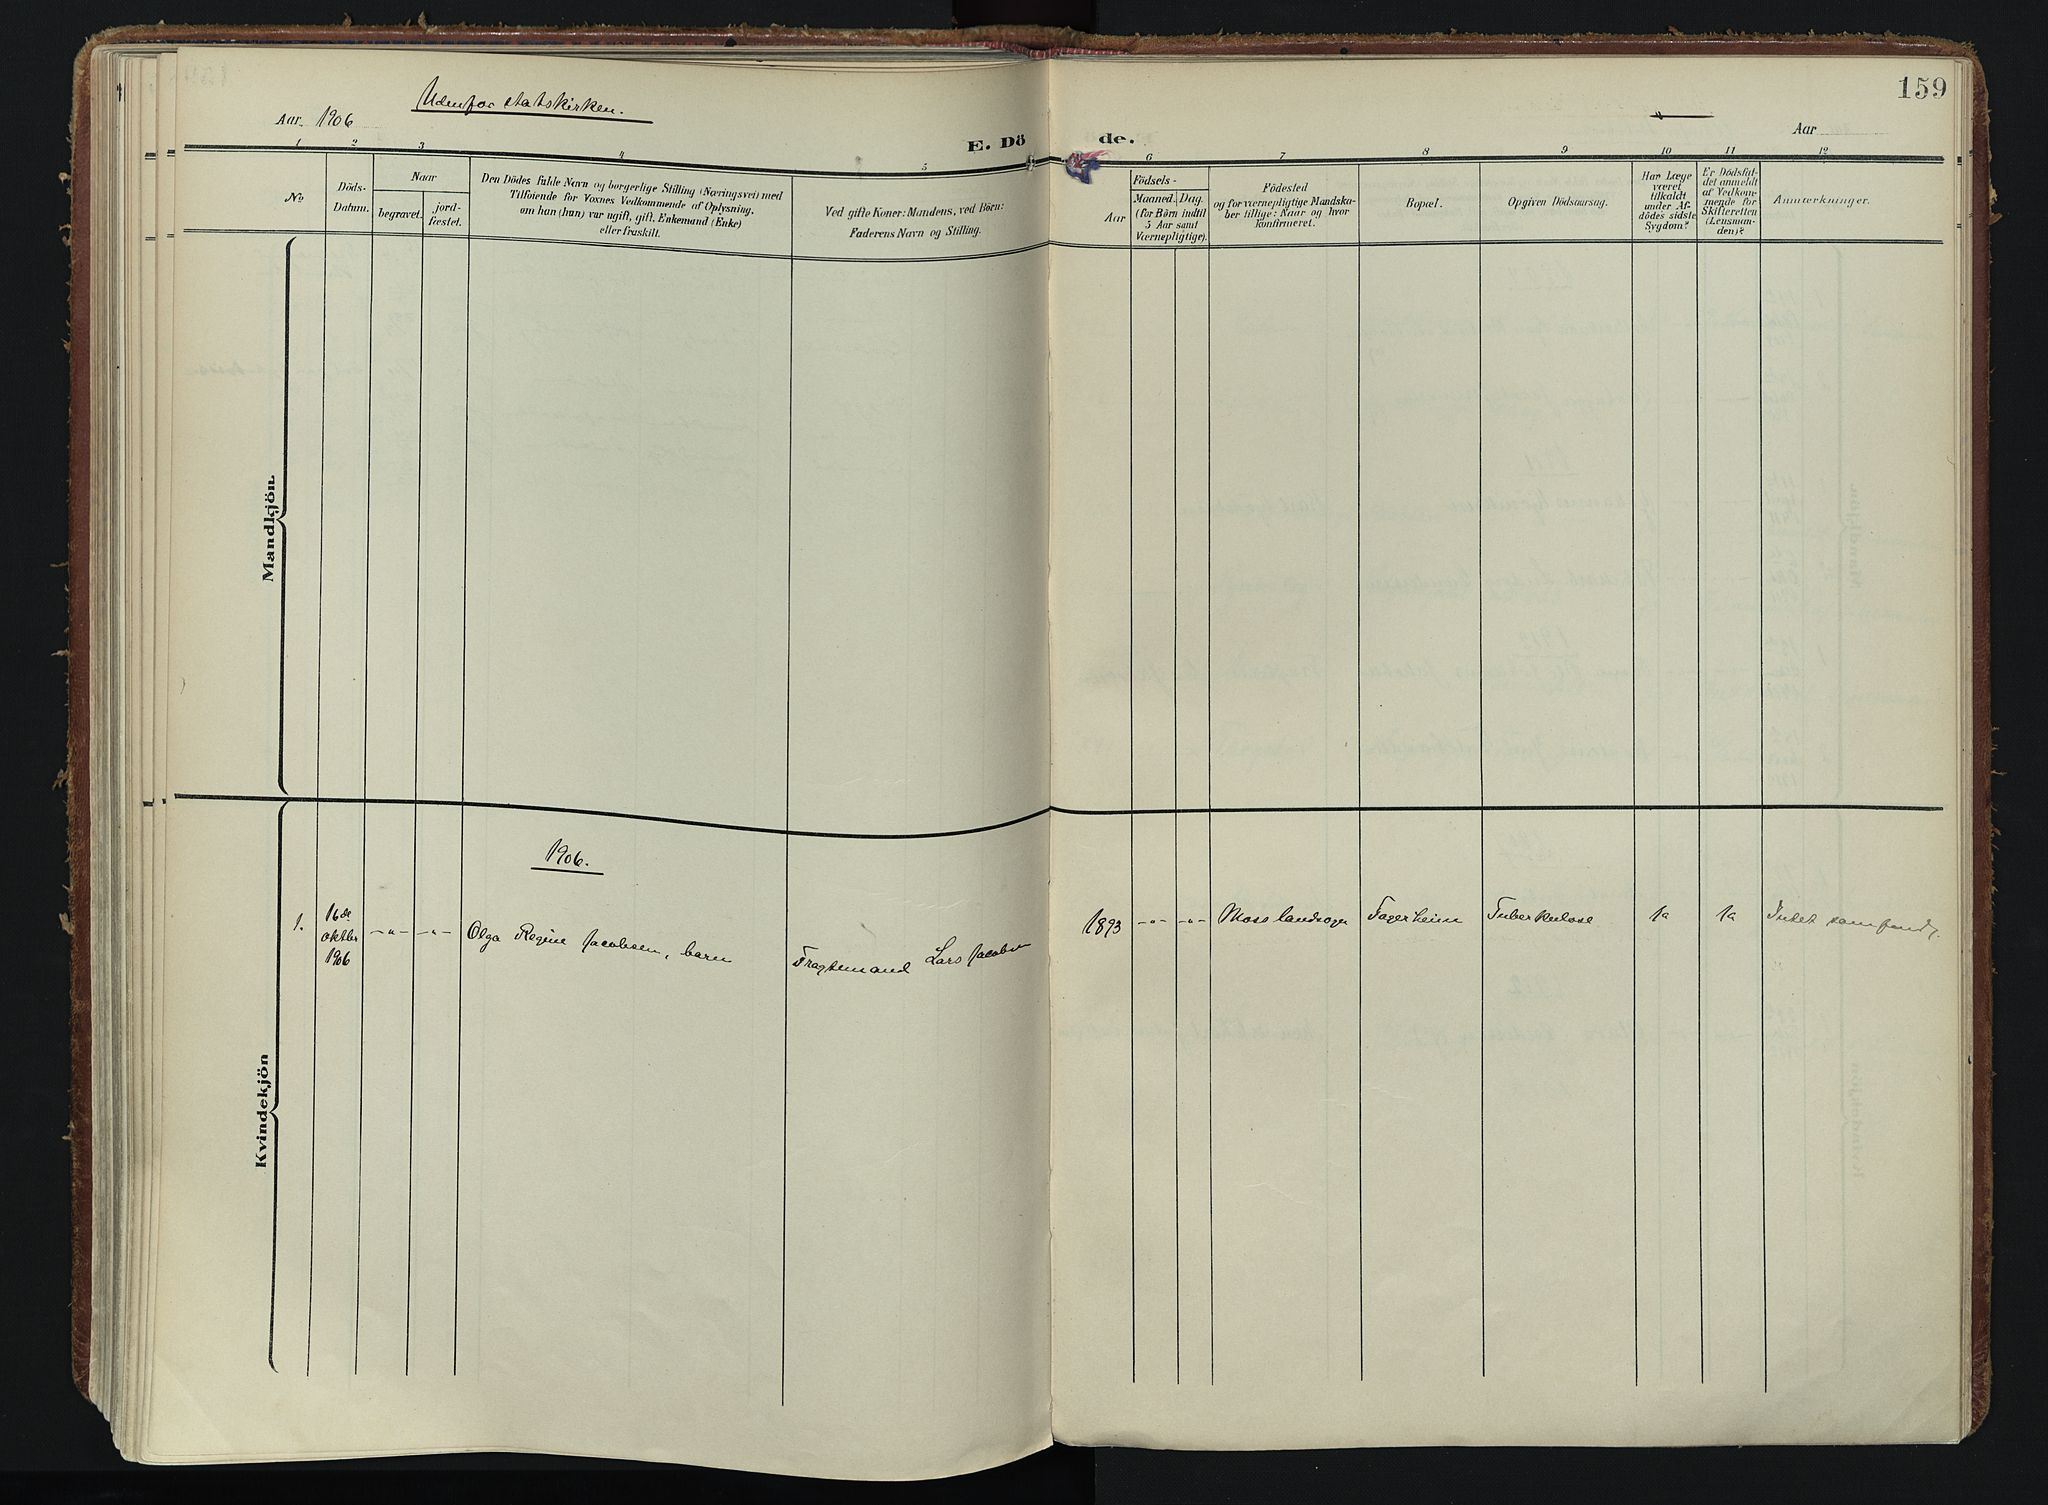 159
Udenfor statskirken.
Aar 1906
Aar
E. Dö
de.
1 2 3 4 5
6 7 8 9 10 11 12
No
Döds-
Datum.
Naar
begravet.
jord-
fæstet.
Den Dödes fulde Navn og borgerlige Stilling (Næringsvei) med
Tilföiende for Voxnes Vedkommende af Oplysning,
om han (hun) var ugift, gift, Enkemand (Enke)
eller fraskilt.
Ved gifte Koner: Mandens, ved Börn:
Faderens Navn og Stilling.
Födsels-
Aar
Maaned.
Dag.
(for Börn indtil
5 Aar samt
Værnepligtige).
Födested
og for værnepligtige Mandska-
ber tillige: Naar og hvor
konfirmeret.
Bopæl.
Opgiven Dödsaarsag.
Har Læge
været
tilkaldt
under Af-
dödes sidste
Sygdom?
Er Dödsfal-
det anmeldt
af Vedkom-
mende for
Skifteretten
(Lensman-
den)?
Anmærkninger.
Mandkjön.
Kvindekjön
1906.
1.
16de
oktbr
1906
-"-
-"-
Olga Regine Jacobsen, barn
Fragtemand Lars Jacobsen
1893
-"-
-"-
Moss landsogn
Fagerheim
Tuberkulose
Ja
Ja
Intet samfund.